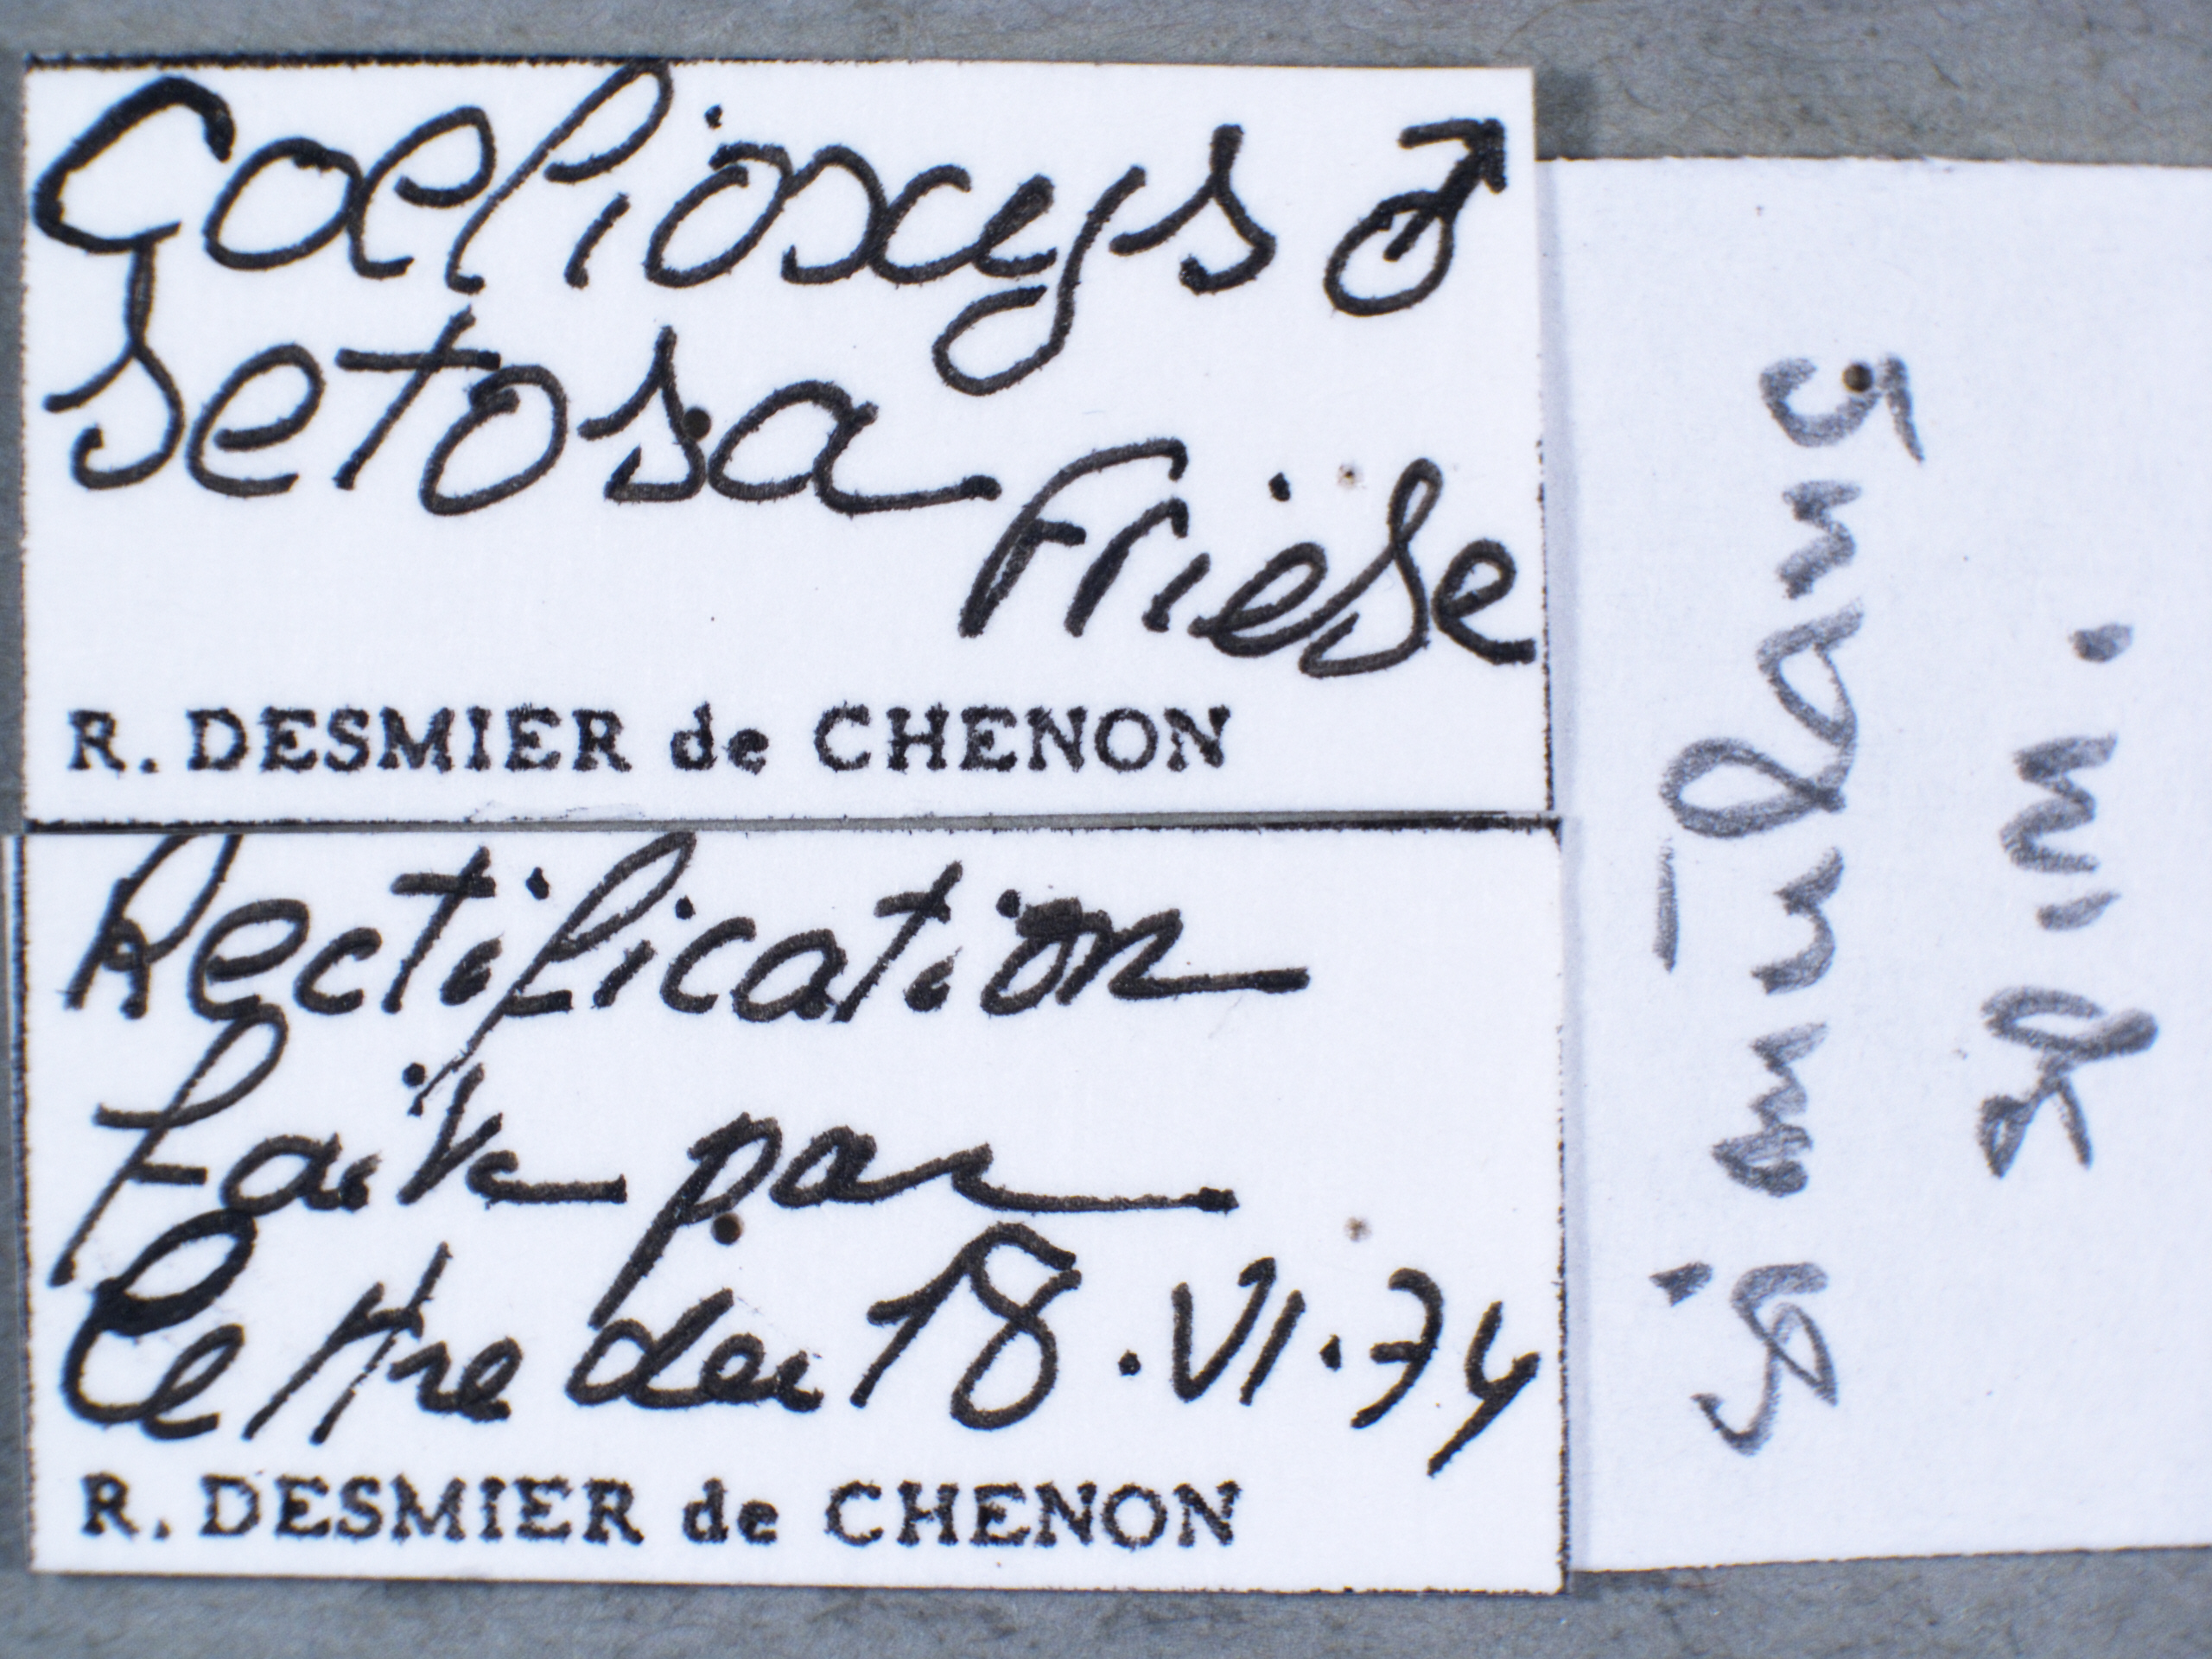 Coelioxys ♂
setosa
Friese
R. DESMIER de CHENON
Rectification
faite par
lettre du 18.VI.74
R. DESMIER de CHENON